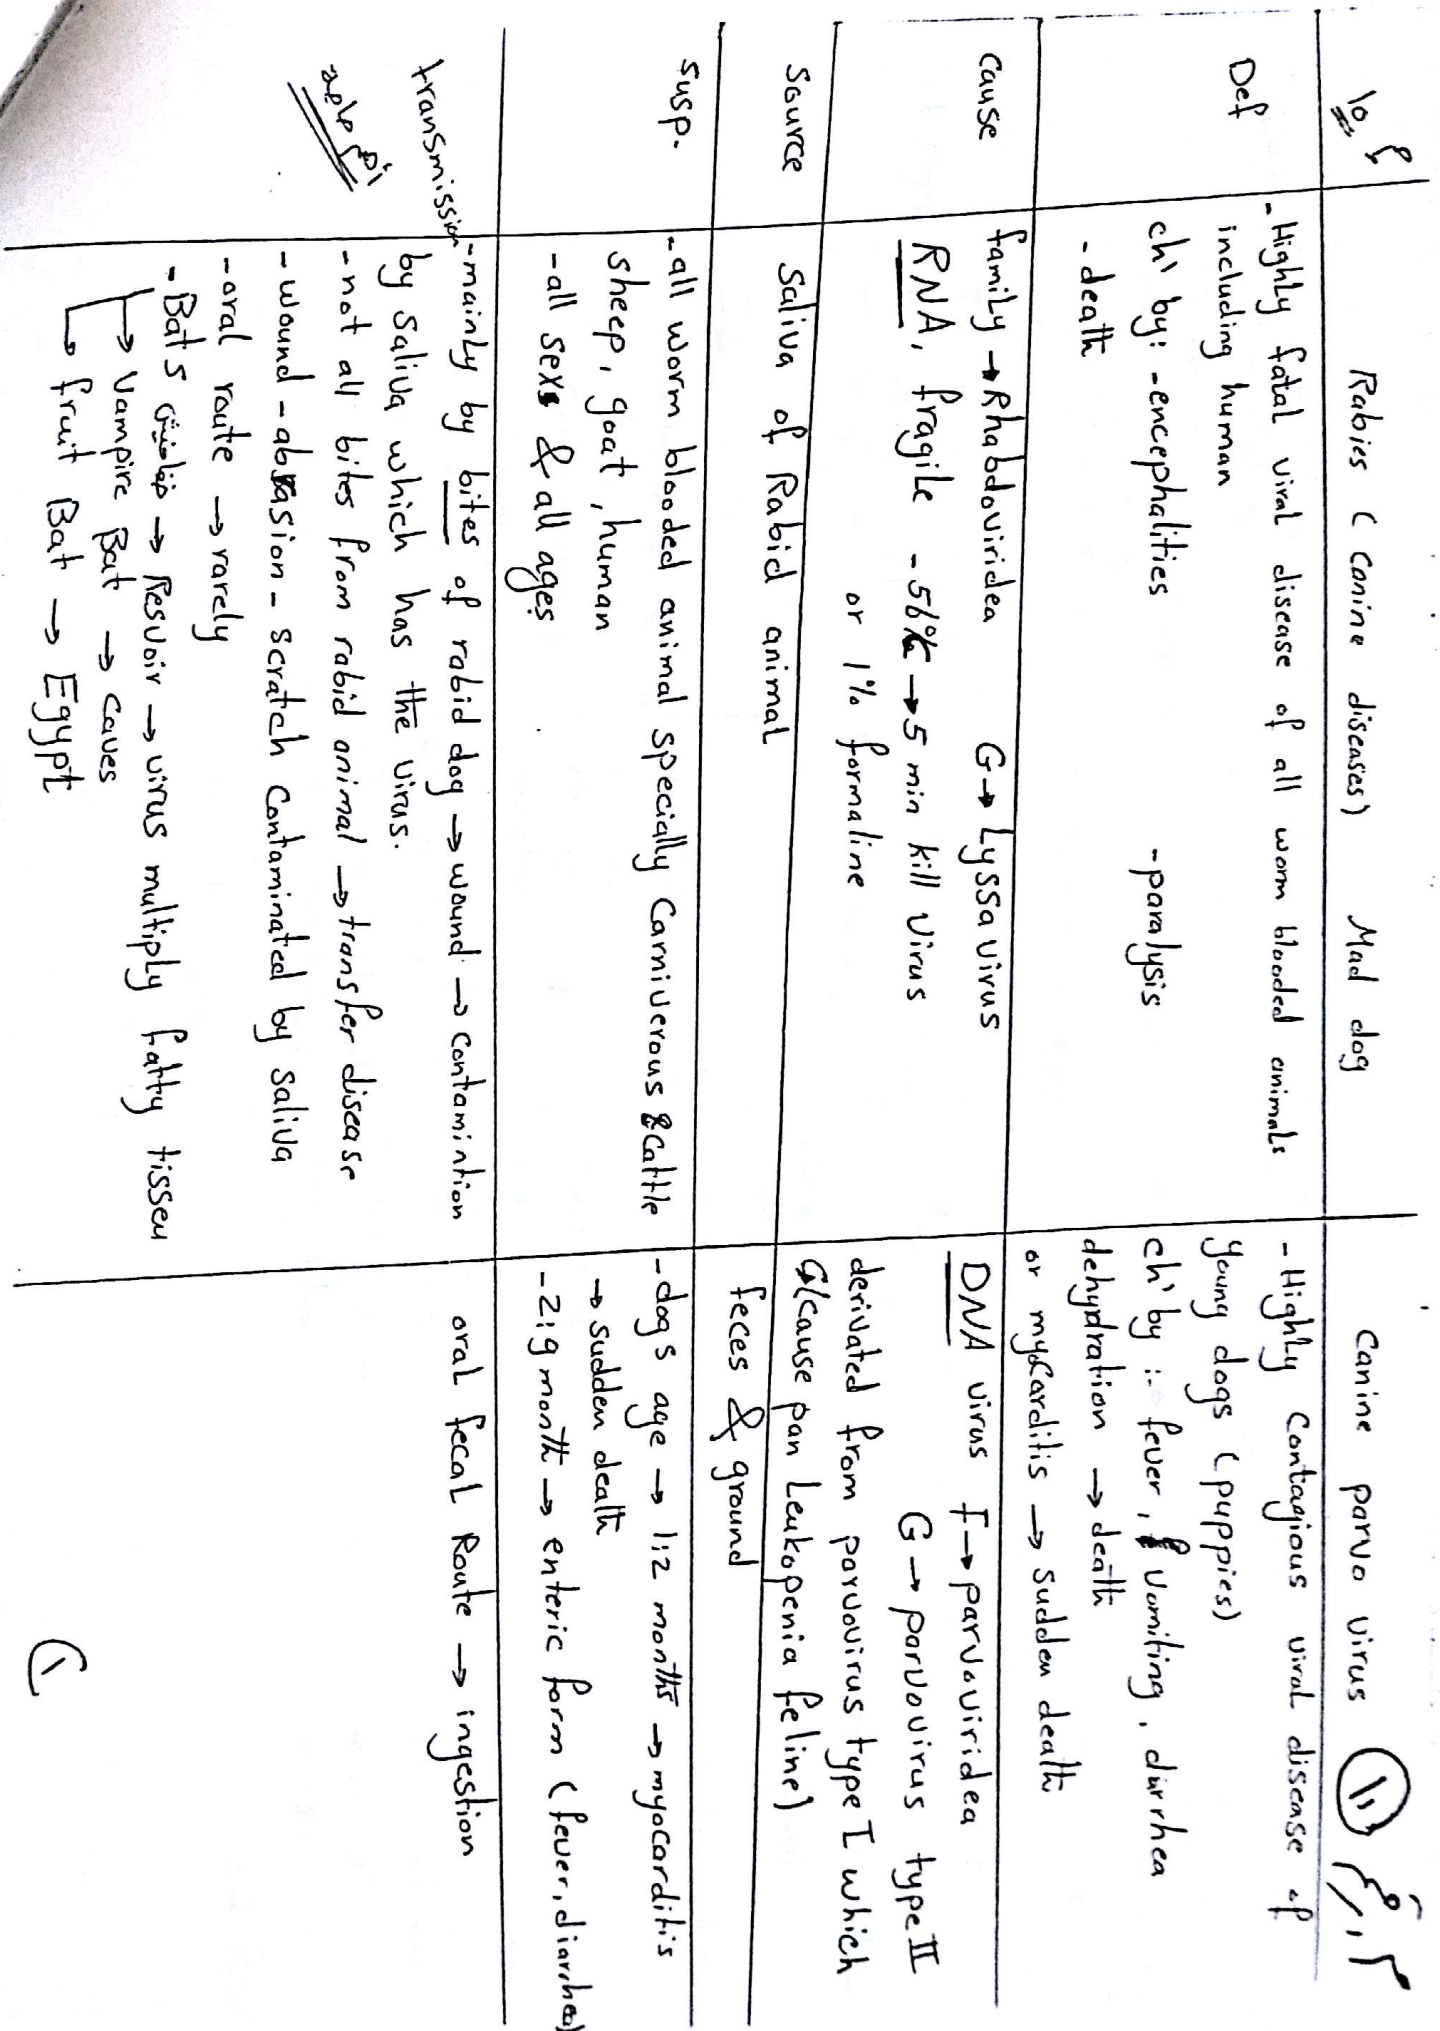 10
Rabies (Canine diseases) Mad dog
Canine parvo virus 11
Def
- Highly fatal viral disease of all worm blooded animals
including human
ch' by: -encephalities -paralysis
- death
- Highly Contagious viral disease of
young dogs (puppies)
ch' by :- fever, vomiting, diarrhea
dehydration → death
or myocarditis → sudden death
Cause
family → Rhabdoviridea G → Lyssa virus
RNA, fragile - 56°C → 5 min kill virus
or 1% formaline
DNA virus F → parvoviridea
G → parvovirus type II
derivated from parvovirus type I which
cause pan Leukopenia feline)
Source
Saliva of Rabid animal
feces & ground
Susp.
- all worm blooded animal specially Carniverous & Cattle
sheep, goat, human
- all sexs & all ages
- dogs age → 1:2 months → myocarditis
→ sudden death
- 2:9 month → enteric form (fever, diarrhea)
transmission
- mainly by bites of rabid dog → wound → contamintion
by saliva which has the virus.
- not all bites from rabid animal → transfer disease
- wound - abrasion - scratch Contaminated by saliva
- oral route → rarely
- Bats خفافيش → Resvoir → virus multiply fatty tisseu
↳ Vampire Bat → caves
↳ fruit Bat → Egypt
oral fecal Route → ingestion